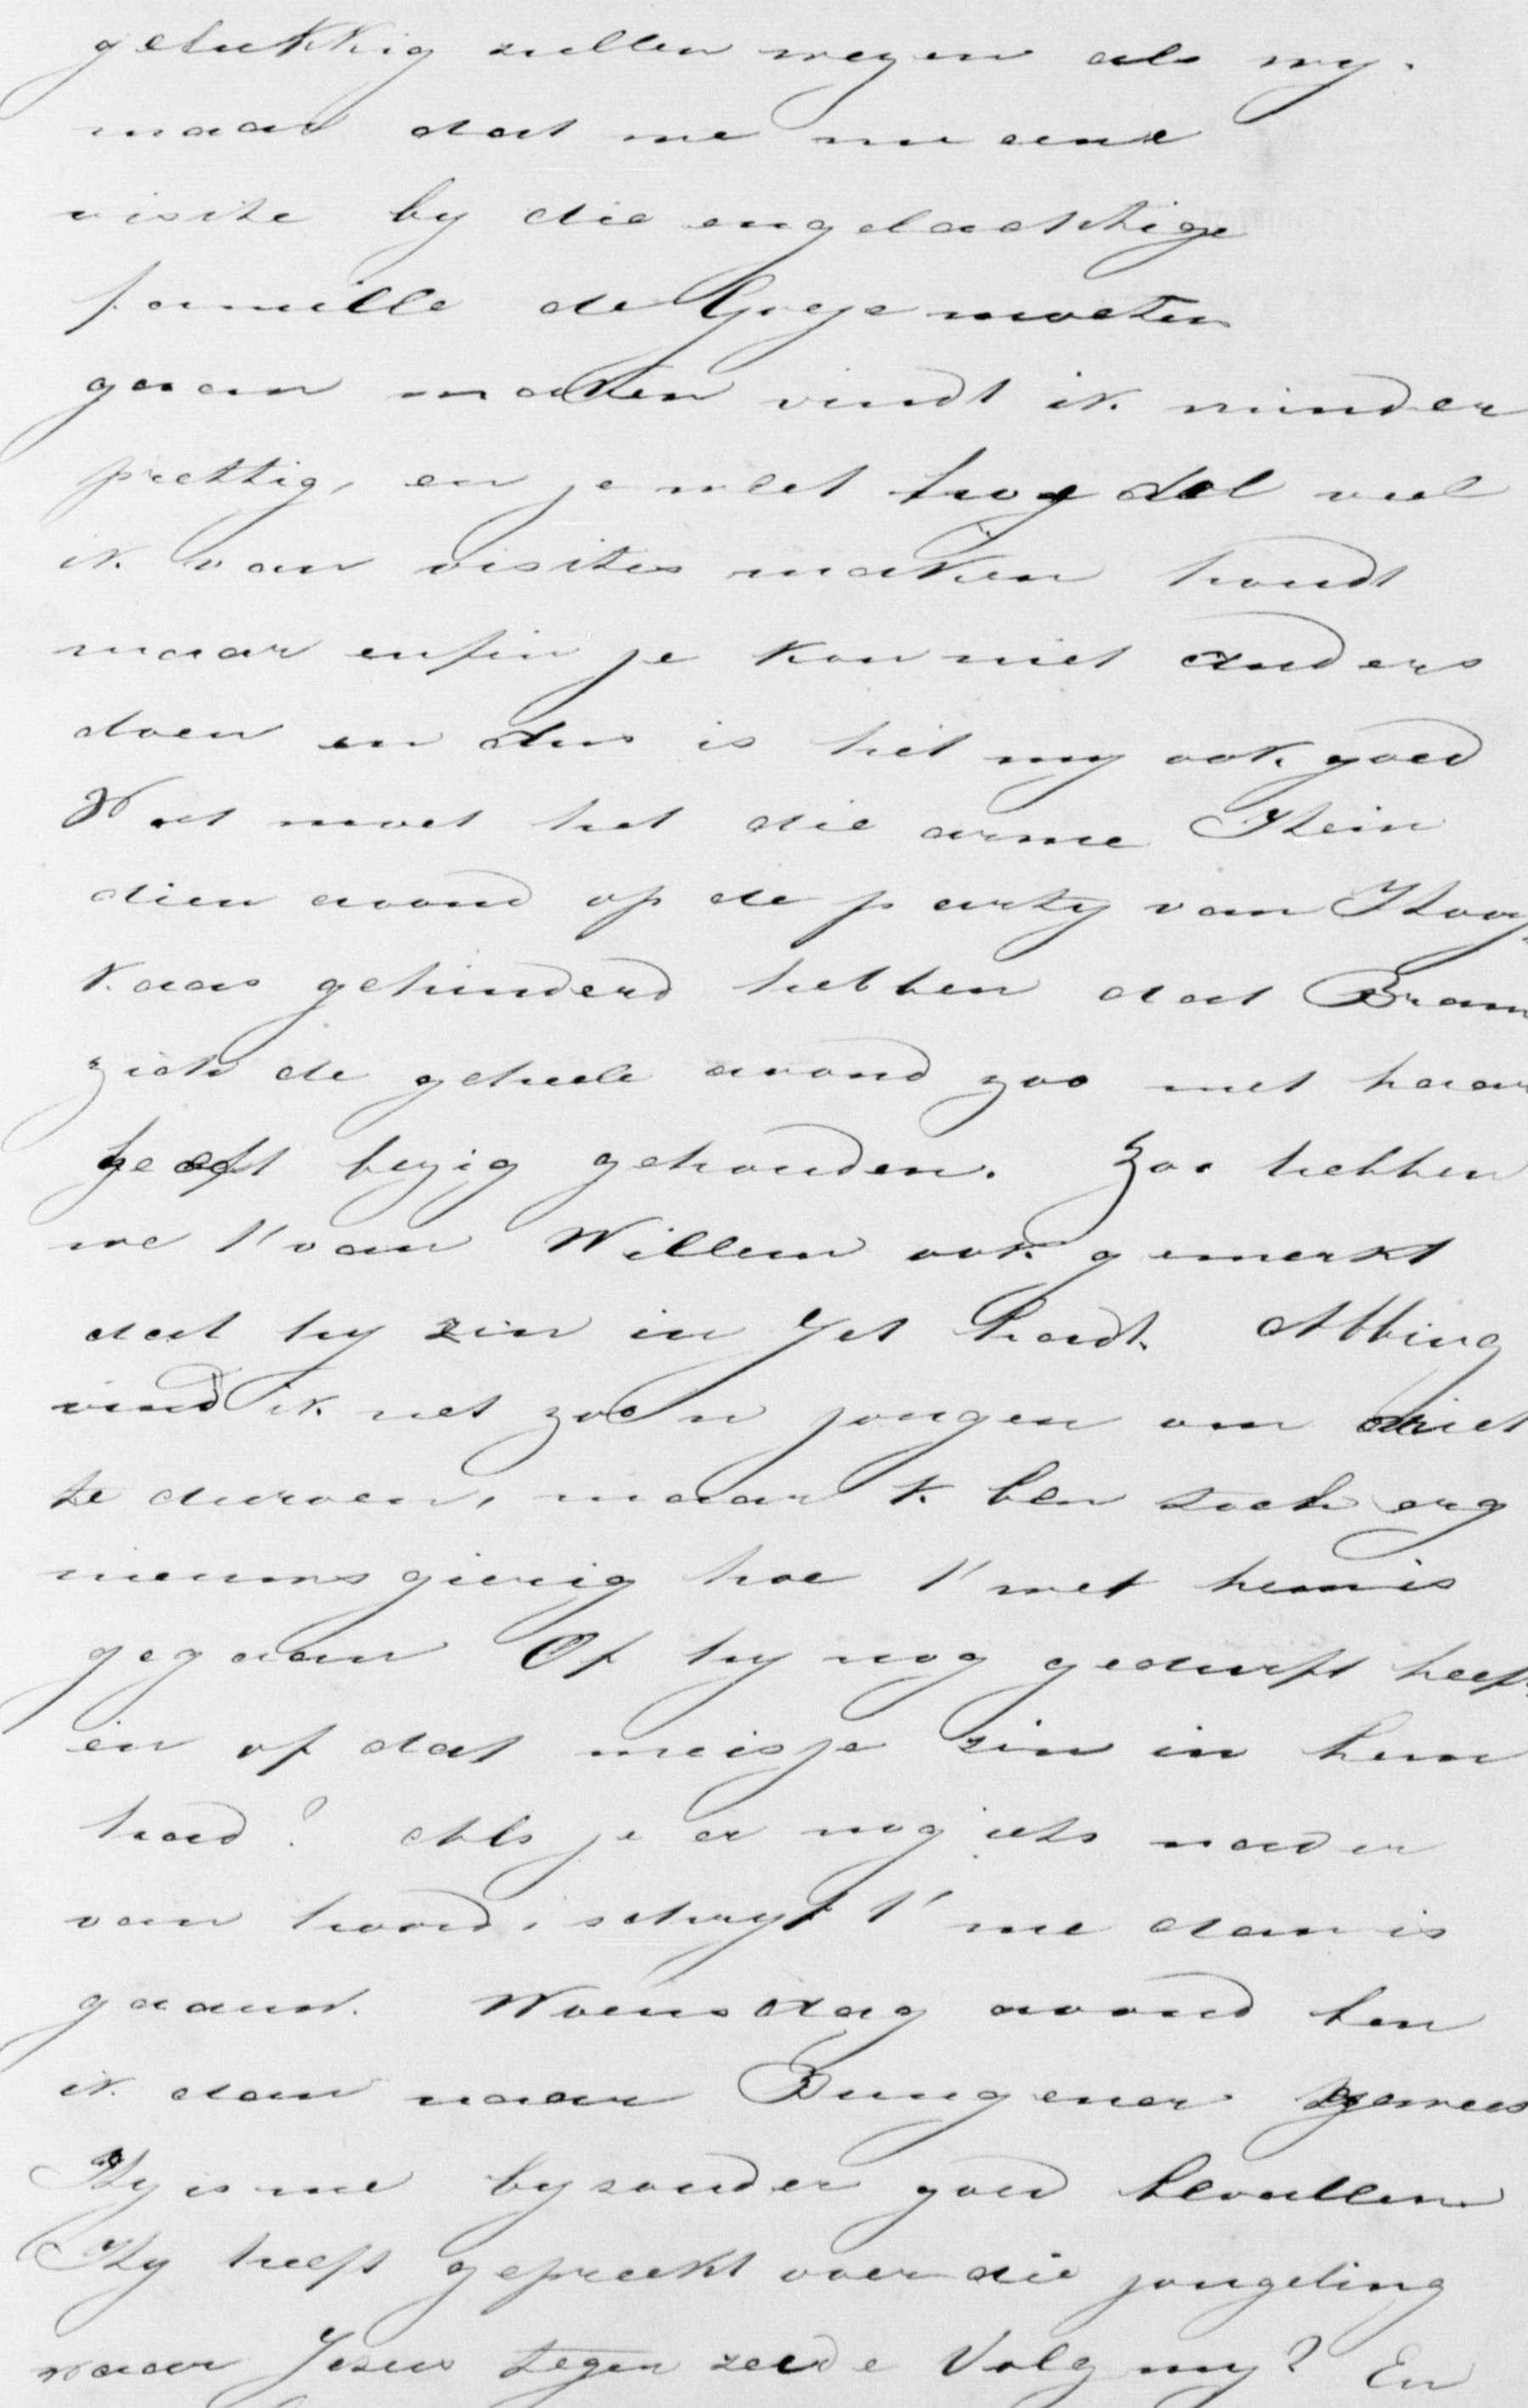 gelukkig zullen wezen als wy.
maar dat we nu eene
visite by die engelachtige
famille de Goeje moeten
gaan maken vindt ik minder
prettig, en je weet hoe dol veel
ik van visites maken houdt
maar enfin je kon niet anders
doen en dus is het my ook goed
Wat moet het die arme Hein
dien avond op de party van Hooy
kaas gehinderd hebben dat Bram
zich de geheele avond zoo met haar
heeft bezig gehouden. Zoo hebben
we t' van Willem ook gemerkt
dat hy zin in Jet hadt. Abbing
vind ik net zoo'n jongen om niet
te durven, maar k ben toch erg
nieuwsgierig hoe t' met hem is
gegaan Of hy nog gedurft heeft
en of dat meisje zin in hem
had? Als je er nog iets nader
van hoord, schryf t' me dan is
gaauw. Woensdag avond ben
ik dan naar Bungener gewees
Hy is me byzonder goed bevallen
Hy heeft gepreekt over die jongeling
waar Jesus tegen zeide Volg my? En